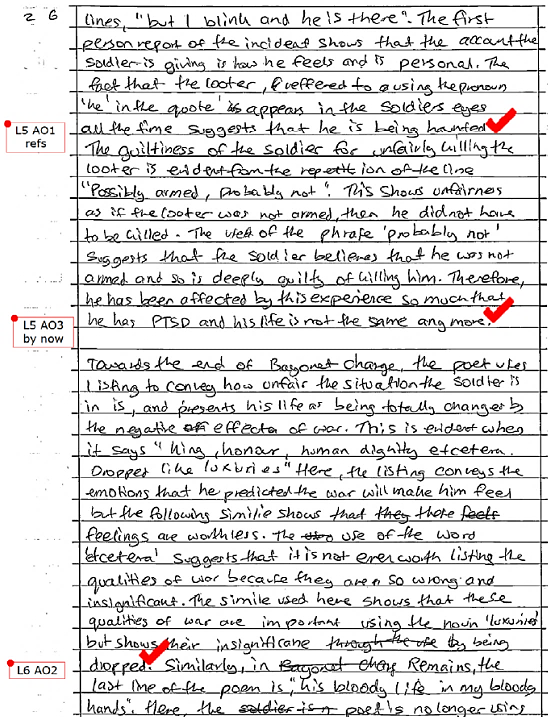 2 6
lines, "but I blink and he is there". The first
person report of the incident shows that the account the
soldier is giving is how he feels and is personal. The
fact that the looter, (reffered to a using the pronoun
'he' in the quote' is appears in the soldiers eyes
all the time suggests that he is being haunted.
L5 AO1
refs
The guiltiness of the soldier for unfairly killing the
looter is evident from the repetition of the line
"Possibly armed, probably not". This shows unfairness
as if the looter was not armed, then he did not have
to be killed. The use of the phrase 'probably not'
suggests that the soldier believes that he was not
armed and so is deeply guilty of killing him. Therefore,
he has been affected by this experience so much that
he has PTSD and his life is not the same any more.
L5 AO3
by now
Towards the end of Bayonet Charge, the poet uses
listing to convey how unfair the situation the soldier is
in is, and presents his life as being totally changes by
the negative effects of war. This is evident when
it says "king, honour, human dignity etcetera.
Dropped like luxuries" Here, the listing conveys the
emotions that he predicted the war will make him feel
but the following similie shows that they those feels
feelings are worthless. The use of the word
'etcetera' suggests that it is not even worth listing the
qualities of war because they are so wrong and
insignificant. The simile used here shows that these
qualities of war are important using the noun 'luxuries'
but shows their insignificane through the use by being
dropped. Similarly, in Bayonet Charg Remains, the
L6 AO2
last line of the poem is, "his bloody life in my bloody
hands". Here, the soldier is poet is no longer using